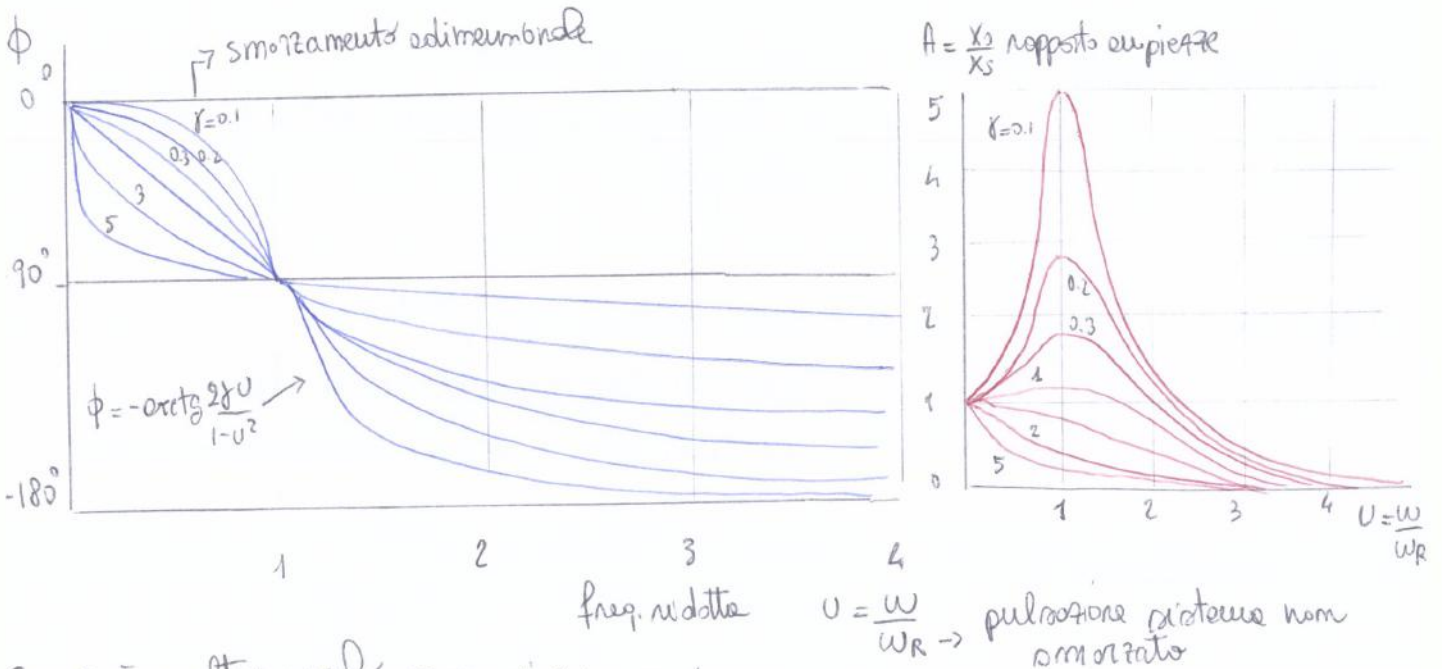 ϕ
→ smorzamento adimensionale
0°
γ=0.1
0.3 0.2
3
5
90°
ϕ = -arctg 2γU / 1-U²
-180°
1 2 3 4
freq. ridotta U = ω / ωR → pulsazione sistema non smorzato
A = X0 / XS rapporto ampiezze
5
γ=0.1
4
3
0.2
2
0.3
1
1
2
5
0
1 2 3 4 U = ω / ωR